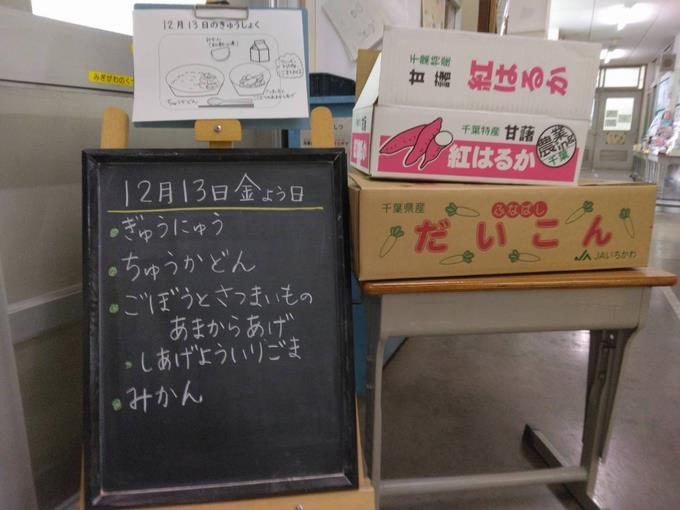 12月13日のきゅうしょく
みぎがわのく
12月13日金よう日
ぎゅうにゅう
ちゅうかどん
ごぼうとさつまいもの
あまからあげ
しあげよういりごま
みかん
千葉特産
甘藷
紅はるか
千葉特産 甘藷
紅はるか
千葉
千葉県産
ふなばし
だいこん
JA JAいちかわ